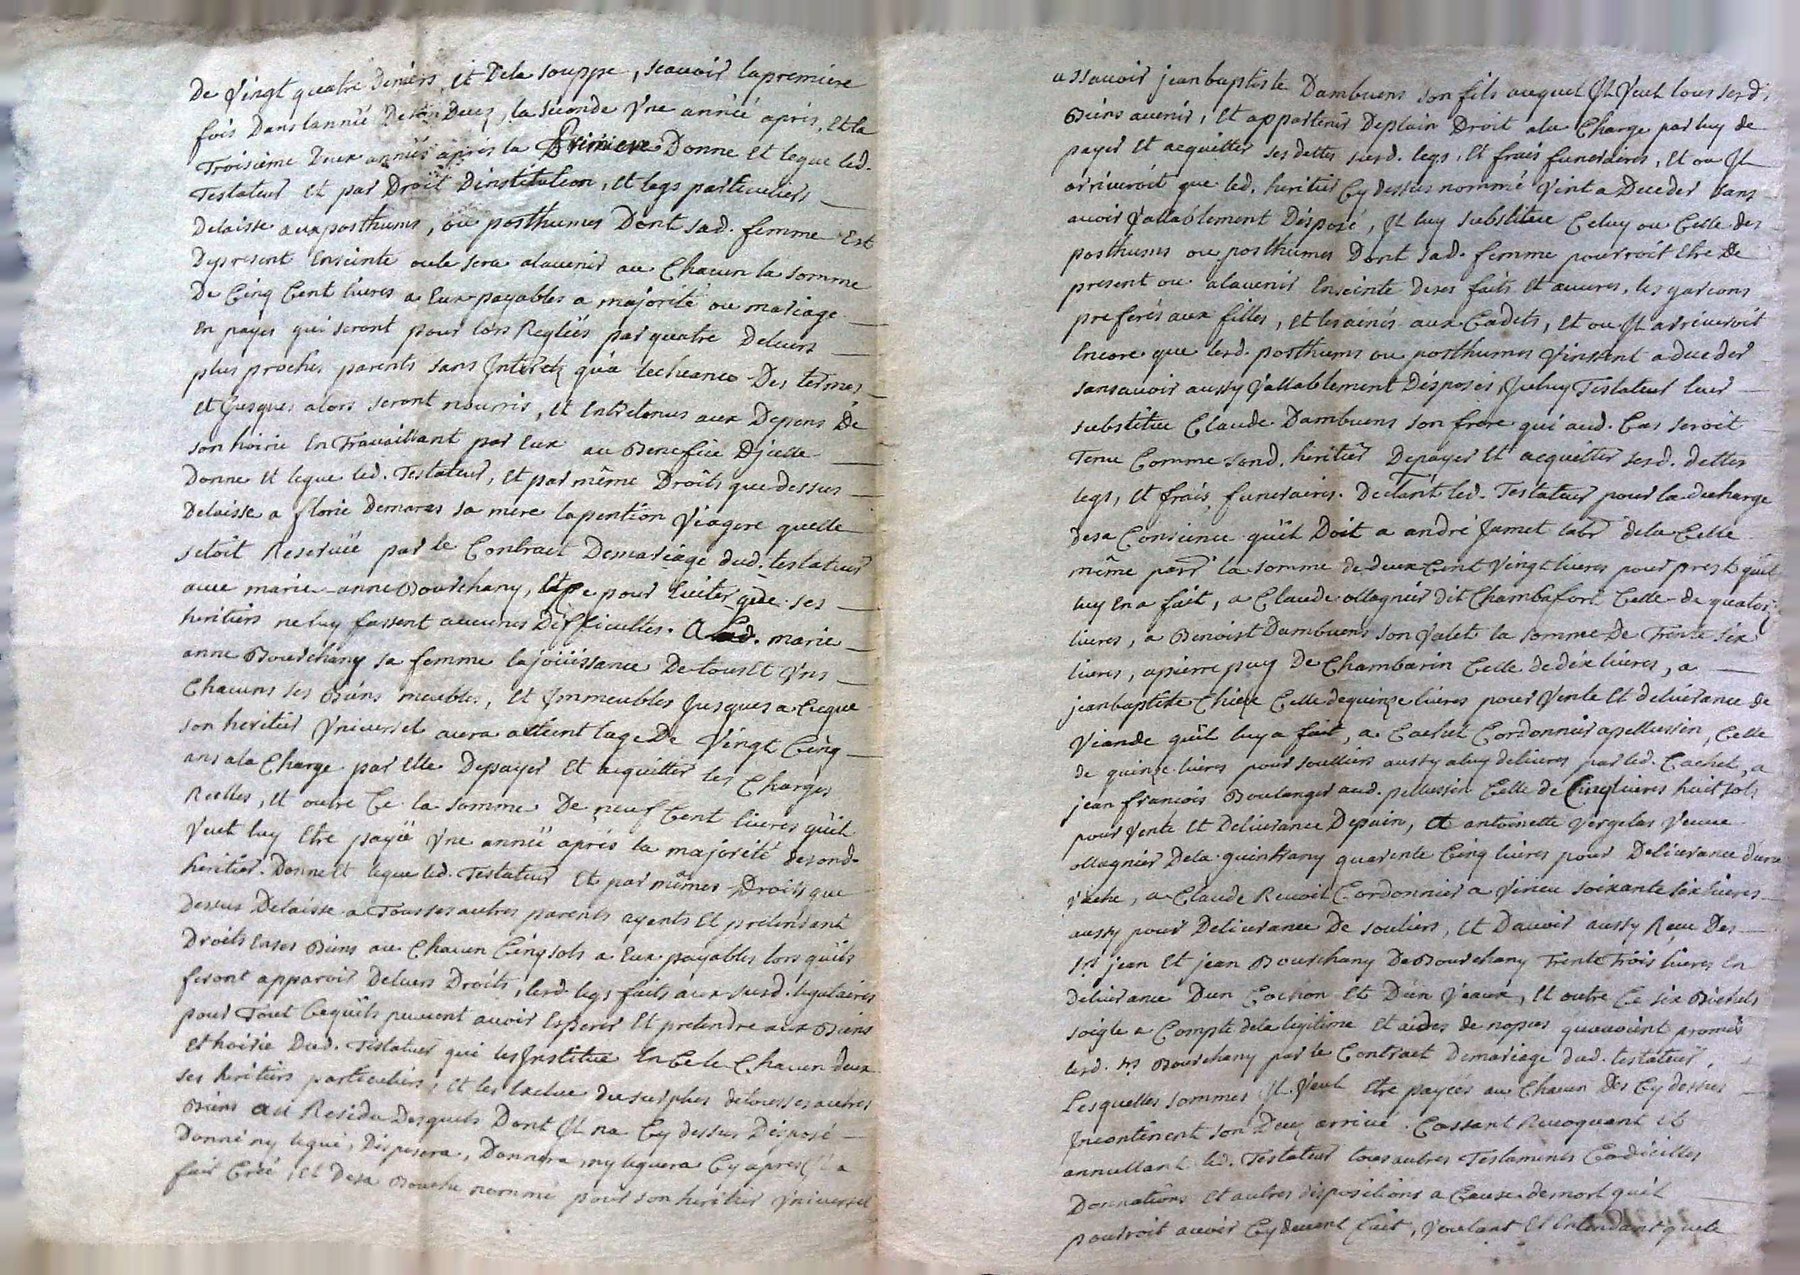 De Vingt quatre deniers, et Dela souppe, scavoir la premiere
fois Dans lannëe De son Decez, la seconde Vne année aprés, et la
Troisieme Deux années apres la Premiere Donne et legue led.
Testateur et par Droit Dinstitution, et legs particuliers
Delaisse aux posthums, ou posthumes Dont sad. femme Est
Depresent Enceinte ou le sera alavenir au Chacun la somme
De Cinq Cent livres a Eux payables a majorité ou mariage
En payes qui seront pour lors Reglëes par quatre Deleurs
plus proches parents sans Jnterêts qu'a lecheance Des termes
et Jusques alors seront nourris, et Entretenus aux Depens De
son hoirie En Travaillant par Eux au Benefice Djcelle
Donne et legue led. Testateur, et par même Droits que dessus
Delaisse a florie Demaras sa mere lapention Viagere quelle
setoit Reservëe par le Contract Demariage dud. testateur
avec marie-anne Bourchany, et ce pour Eviter que ses
heritiers ne luy fassent aucunes Difficultes. A lad. marie
anne Bourchany sa femme lajoüissance De tous et Vns
Chacuns ses Biens meubles, et Jmmeubles Jusques a Ceque
son heritier Vniversel aura atteint lage De Vingt Cinq
ans ala Charge par Elle Depayer et acquitter les Charges
Reelles, et outre Ce la somme De neuf Cent livres quil
Veut luy Etre payëe Vne annëe aprés la majorité desond.
heritier. Donne et legue led. Testateur et par mêmes Droits que
Dessus Delaisse a Tous ses autres parents ayants et pretendant
Droits Ases Biens au Chacun Cinq sols a Eux payables lors quils
feront apparoir Deleurs Droits, lesd. legs faits aux susd. legataires
pour Tout Cequils peuvent avoir Esperer et pretendre aux Biens
et hoirie Dud. Testateur qui les Jnstitue En Ce le Chacun deux
ses heritiers particuliers, et les Exclue du surplus detous ses autres
Biens au Residu Desquels Dont Jl na Cy dessus Disposé
Donné ny legué, Disposera, Donnera, ny leguera Cy aprés Jl a
fait Créé, et Desa Bouche nommé pour son heritier Vniversel
assavoir jean baptiste Dambuens son fils auquel Jl Veut tous sesd.
Biens avenir, et appartenir Deplain Droit ala Charge par luy de
payer et acquitter ses dettes susd. legs, et frais funeraires, et ou Jl
arriveroit que led. heritier Cy dessus nommé Vint a Deceder sans
avoir Vallablement Disposé, Jl luy substitue Celuy ou Celle des
posthums ou posthumes Dont sad. femme pourroit Etre De
present ou alavenir Enceinte Deses faits et œuvres, les garcons
preferés aux filles, et les ainés aux Cadets, et ou Jl arriveroit
Encore que lesd. posthums ou posthumes Vinssent a deceder
sansavoir aussy Vallablement Disposés Jceluy Testateur leur
substitue Claude Dambuens son frere qui aud. Cas seroit
Tenu Comme sond. heritier Depayer et acquitter sesd. dettes
legs, et frais funeraires. Declarant led. Testateur pour la decharge
desa Conscience quil Doit a andré Jamet labr dela Celle
même parr la somme de deux Cent Vingt livres pour prest quil
luy En a fait, a Claude ollagnier dit Chambafort Celle de quatorze
livres, a Benoist Dambuens son Valet la somme De Trente six
livres, apierre puy De Chambarin Celle de dix livres, a
jean baptiste Chieze Celle dequinze livres pour Vente et delivrance de
Viande quil luy a fait, a Cachet Cordonnier apellussin, Celle
de quinze livres pour soulliers aussy aluy delivres par led. Cachet, a
jean francois Boulanger aud. pellussin Celle de Cinq livres huit sols
pour Vente et Delivrance Depain, et antoinette Vergelas Veuve
ollagnier Dela quintrany quarente Cinq livres pour Delivrance dune
Vache, a Claude Revoil Cordonnier a Virieu soixante six livres
aussy pour Delivrance De souliers, et Davoir aussy Reçu Des
srs jean et jean Bourchany De Bourchany Trente Trois livres En
delivrance Dun Cochon et D'un Veaux, et outre Ce six Bichets
soigle a Compte dela legitime et aides de nopces quavoient promis
lesd. srs Bourchany par le Contract Demariage dud. testateur,
Lesquelles sommes Jl Veut Etre payëes au Chacun Des Cy dessus
Jncontinent son Decez arrivé. Cassant Revoquant et
annullant led. Testateur tous autres Testaments Codicilles
Donnations et autres dispositions a Cause demort quil
pourroit avoir Cy devant fait, Voulant et Entendant que le